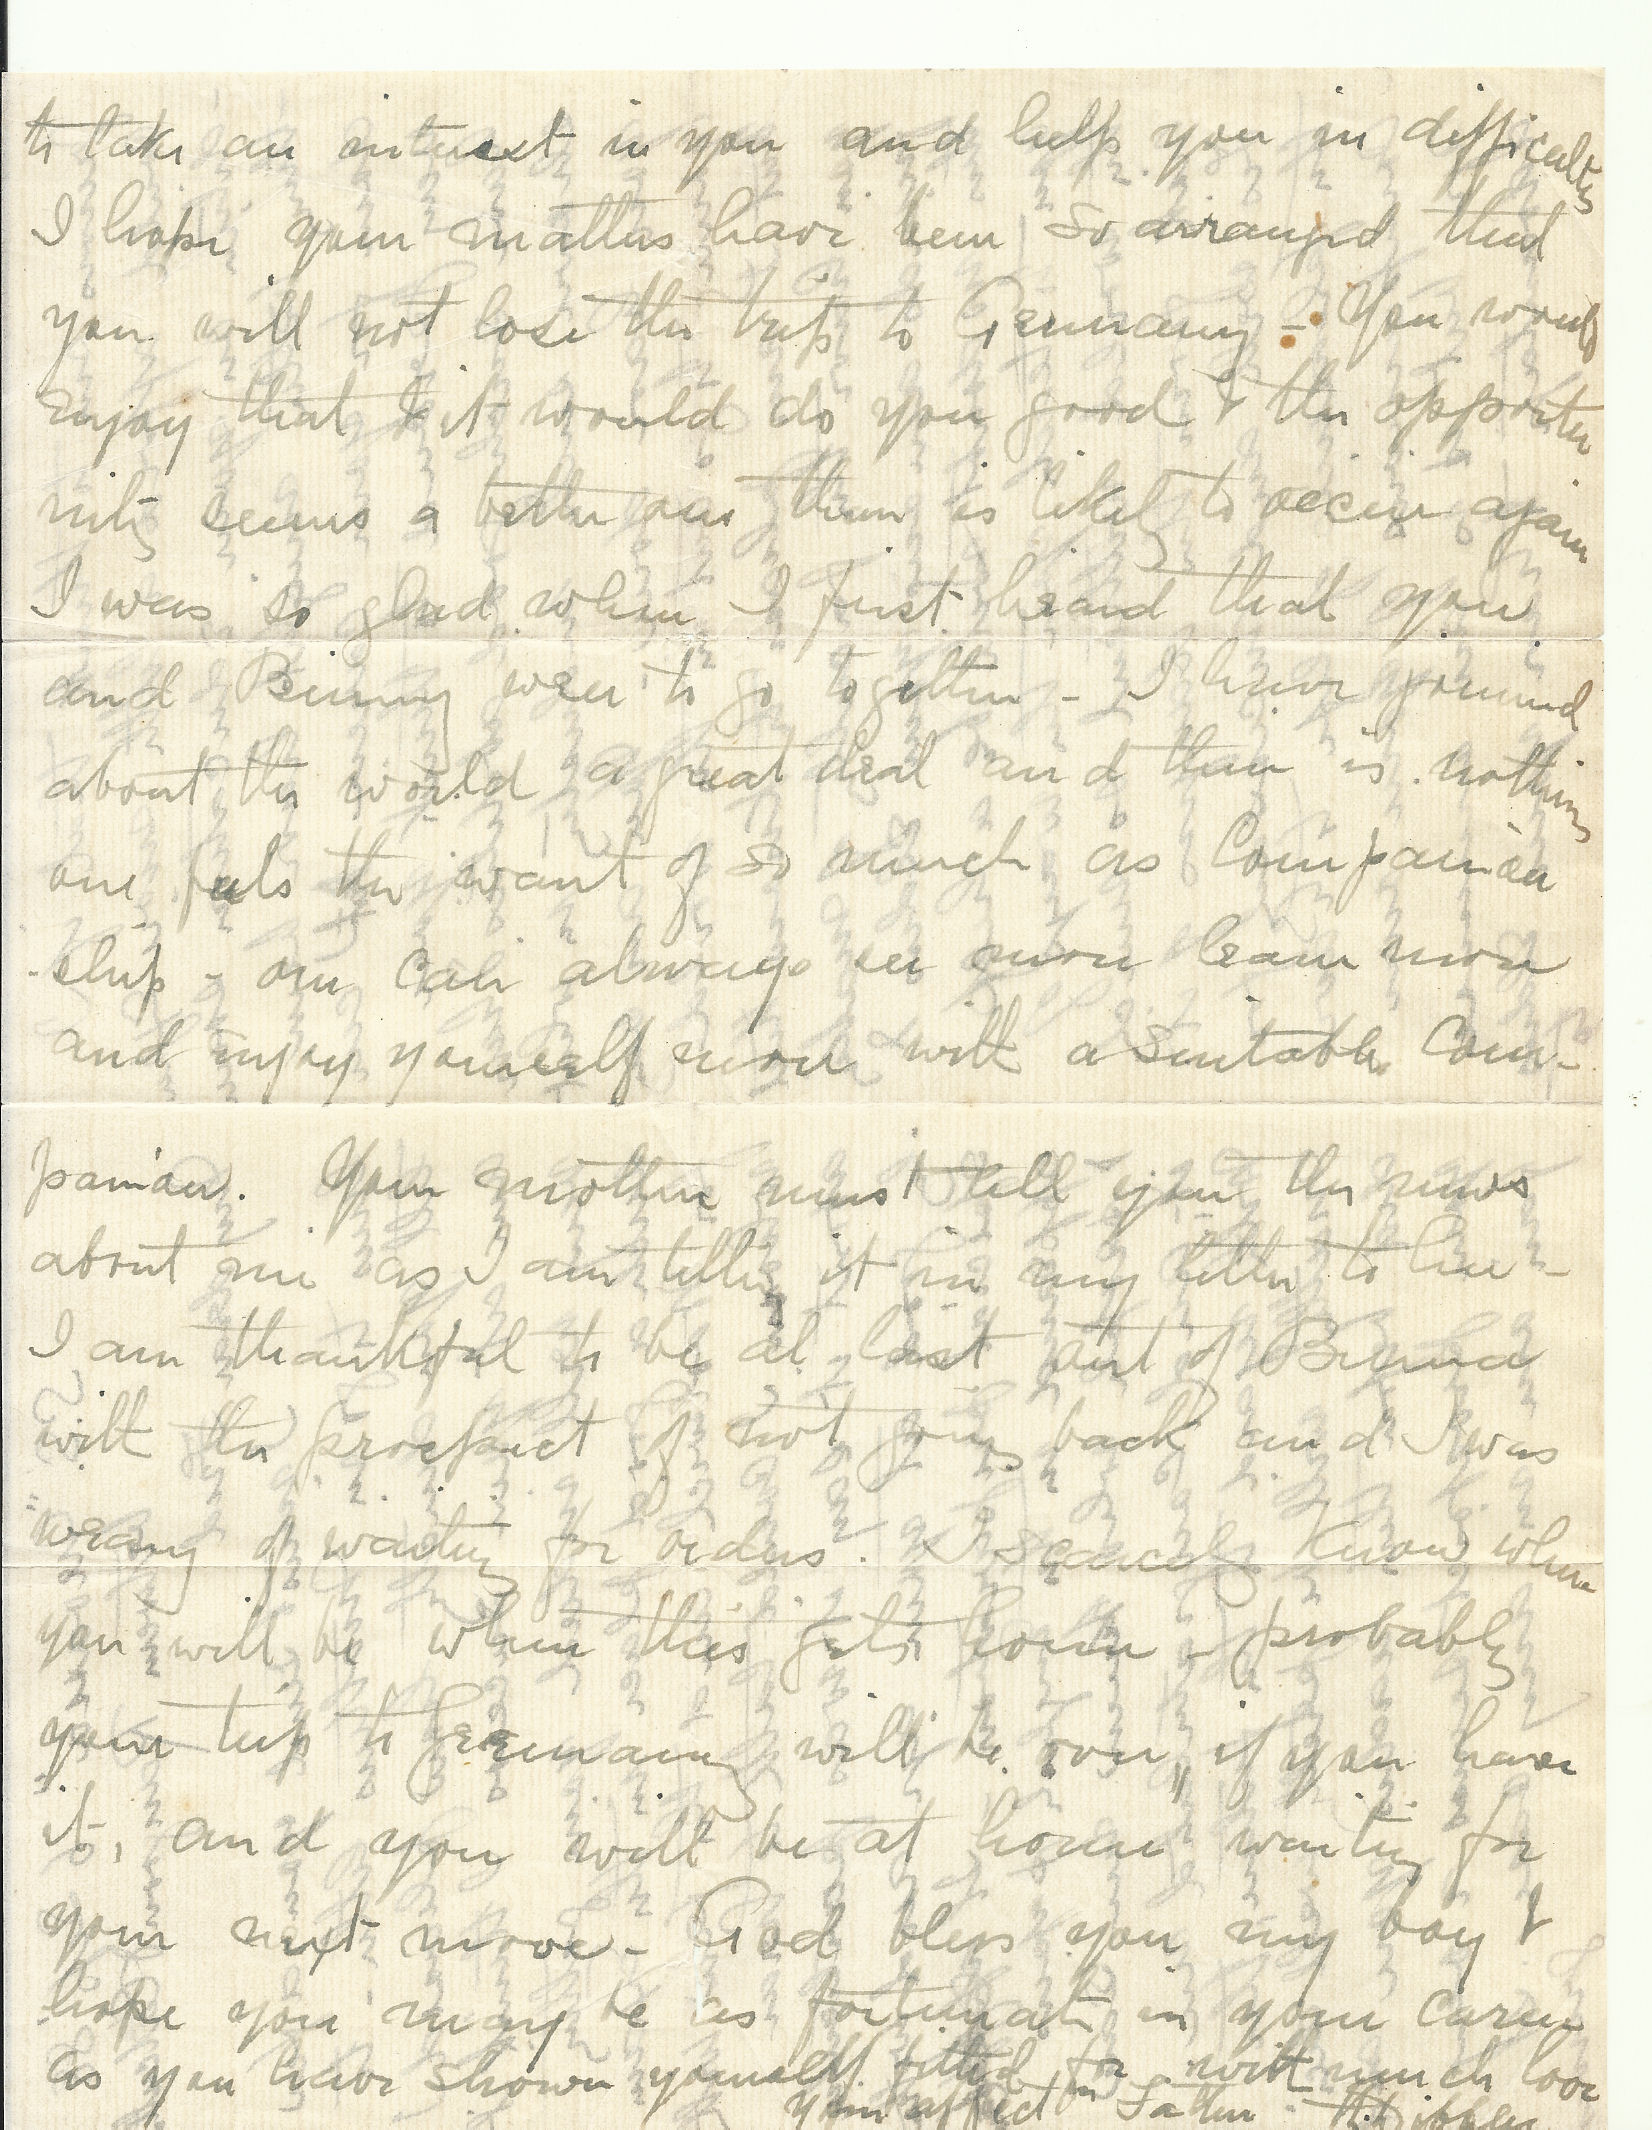 to take an interest in you and help you in difficulties
I hope your matters have been so arranged that
you will not lose the trip to Germany - You would
enjoy that & it would do you good & the opportu
nity seems a better one than is likely to occur again
I was so glad when I first heard that you
and Binny were to go together - I have journied
about the world a great deal and there is nothing
one feels the want of so much as Companion
ship - one can always see more learn more
and enjoy yourself more with a suitable Com-
panion. Your mother must tell you the news
about me as I am telling it in my letter to her -
I am thankful to be at last out of Burma
with the prospect of not going back and I was
weary of waiting for orders. I scarcely know where
you will be when this gets home - probably
your trip to Germany will be over, if you have
it, and you will be at home waiting for
your next move - God bless you my boy &
hope you may be as fortunate in your career
as you have shown yourself fitted for with much love
your affectn father